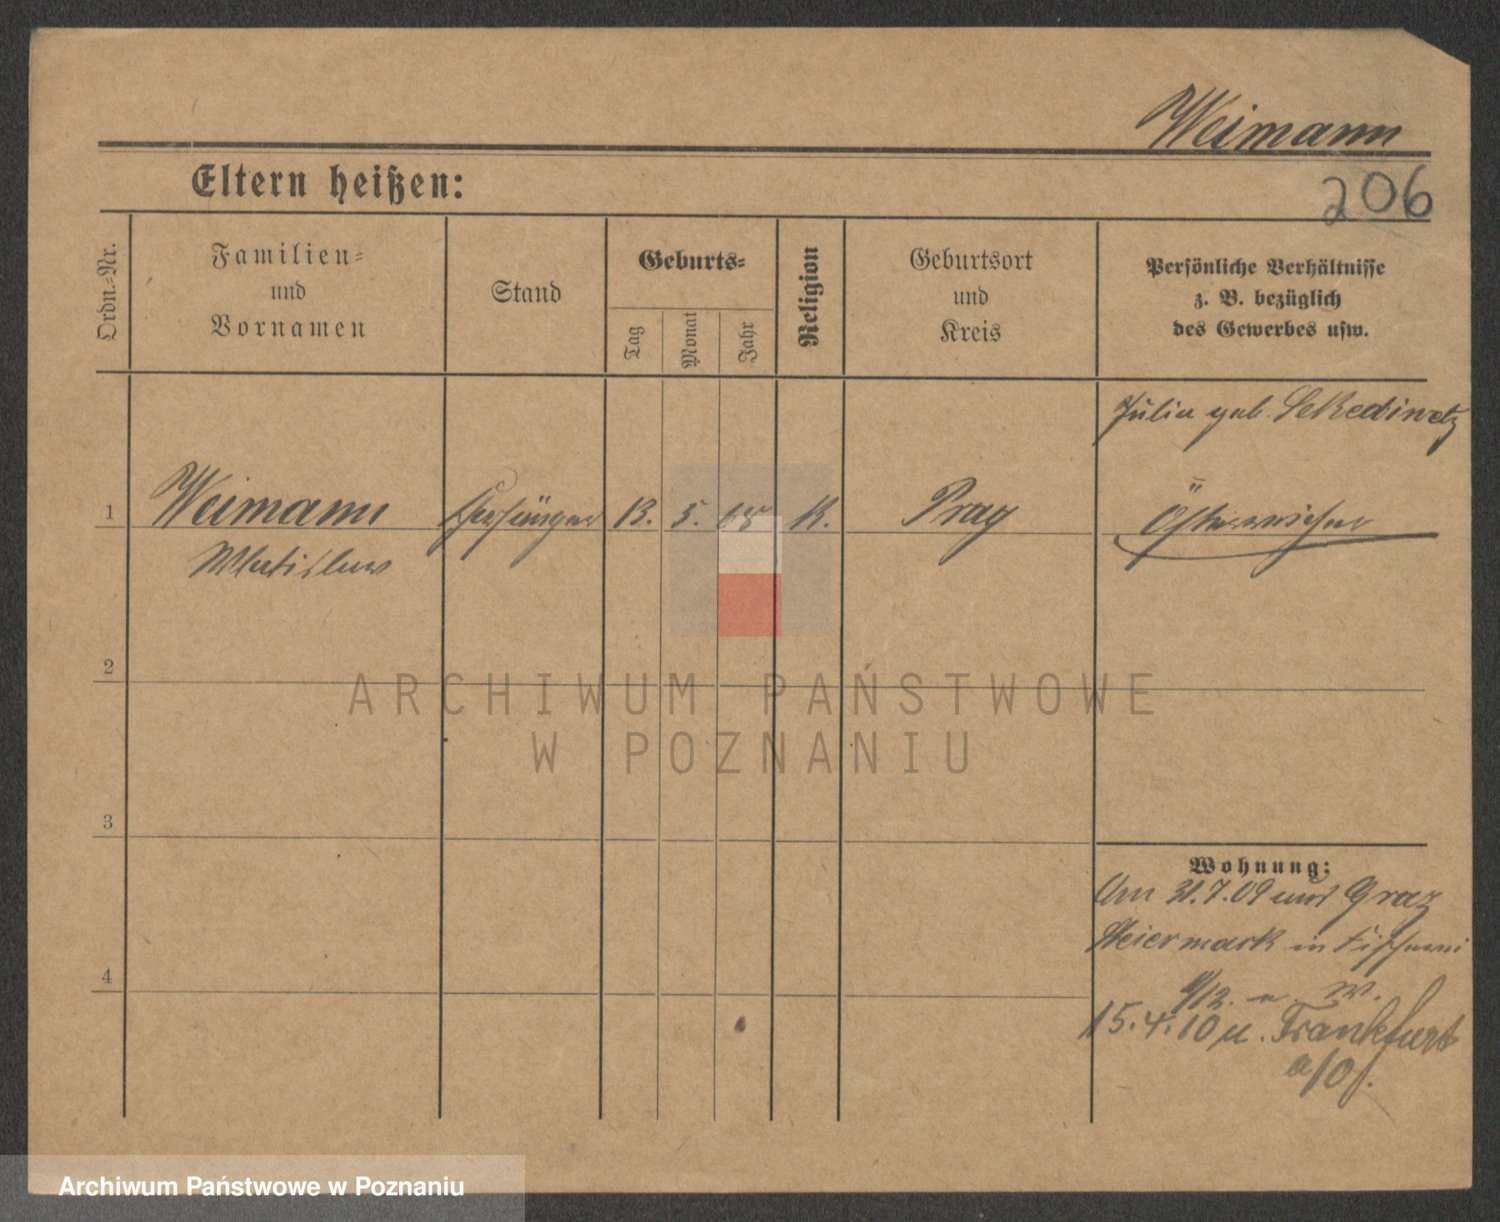 Weimann
206
Eltern heißen:
Ordn.-Nr.
Familien-
und
Vornamen
Stand
Geburts-
Tag
Monat
Jahr
Religion
Geburtsort
und
Kreis
Persönliche Verhältnisse
z. B. bezüglich
des Gewerbes usw.
Julia geb.
1
Weimann
13. 5. 65
K.
Prag
Österreicher
2
ARCHIWUM PAŃSTWOWE
W POZNANIU
3
Wohnung:
Am 31.7.09 Graz
Steiermark in
4
15.4.10 u. Frankfurt
a/O.
Archiwum Państwowe w Poznaniu